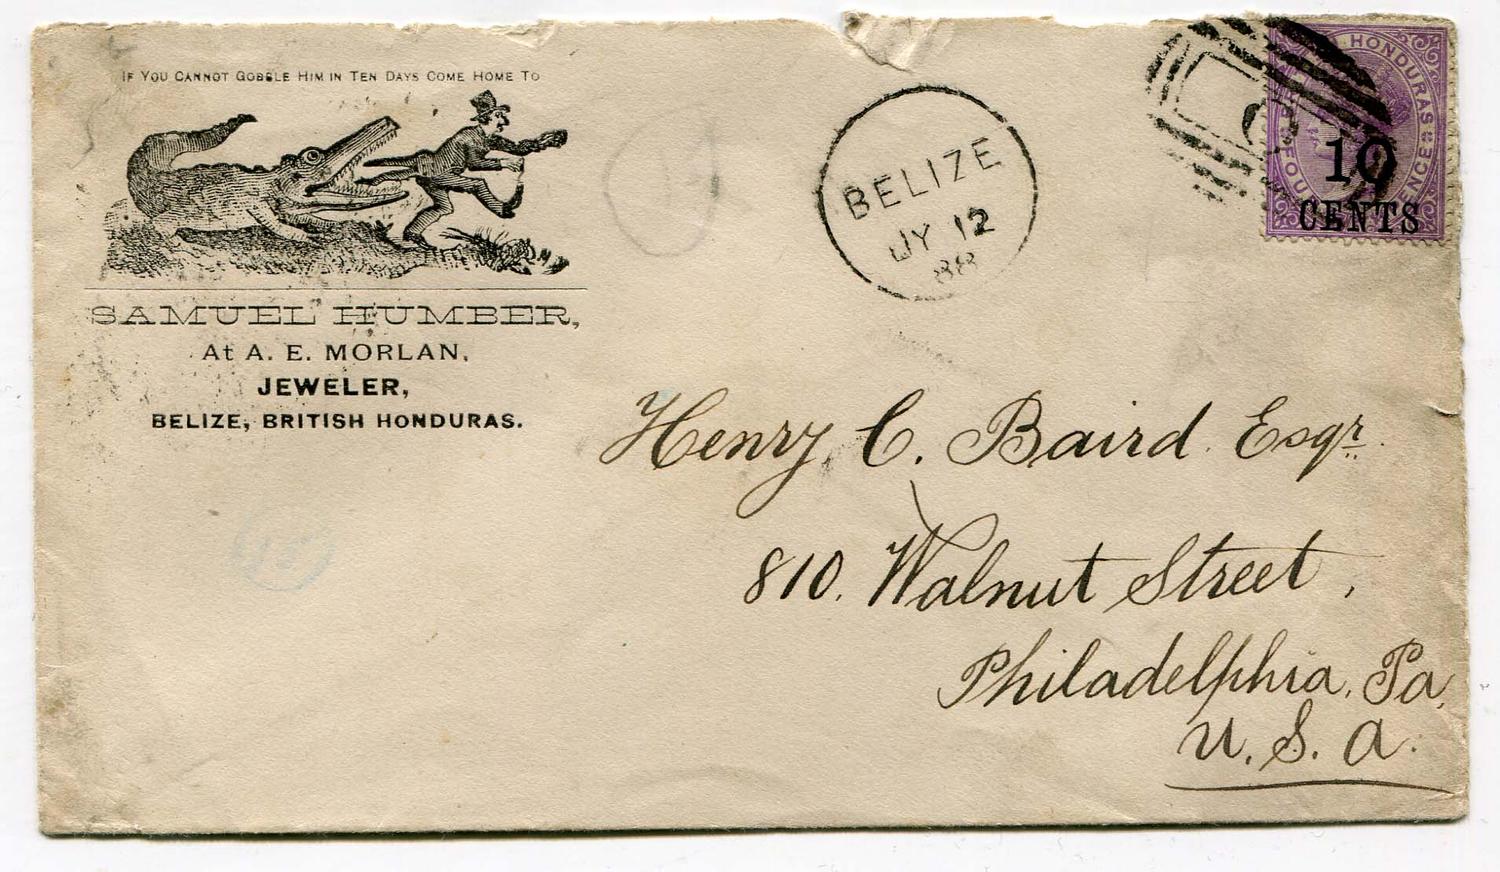 IF YOU CANNOT GOBBLE HIM IN TEN DAYS COME HOME TO
SAMUEL HUMBER,
At A. E. MORLAN,
JEWELER,
BELIZE, BRITISH HONDURAS.
BELIZE
JY 12
88
HONDURAS
FOUR PENCE
10
CENTS
Henry C. Baird Esqr.
810. Walnut Street,
Philadelphia, Pa.
U. S. A.